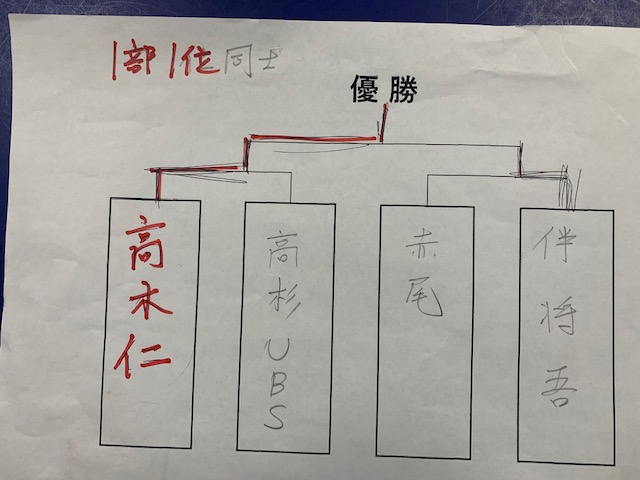 1部1位同士
優勝
高木仁
高杉UBS
赤尾
伴将吾